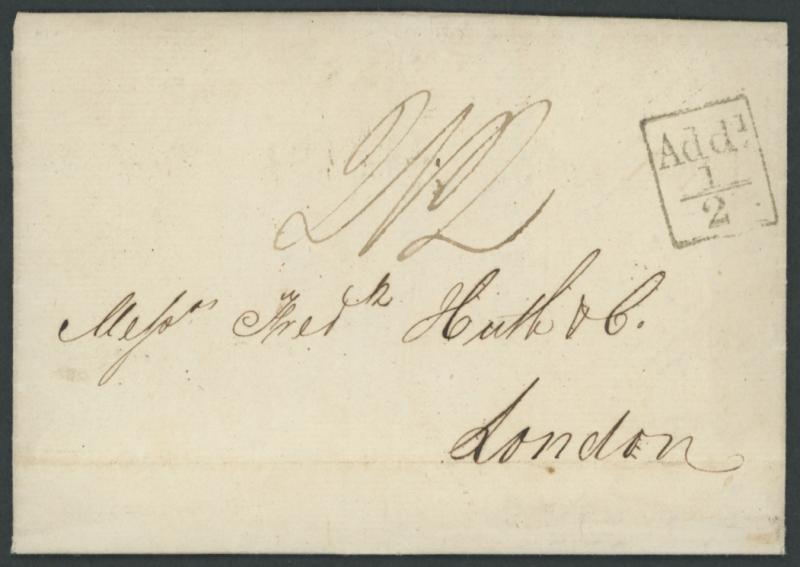 Add!
1
2
Messrs Fredk Huth & C.
London